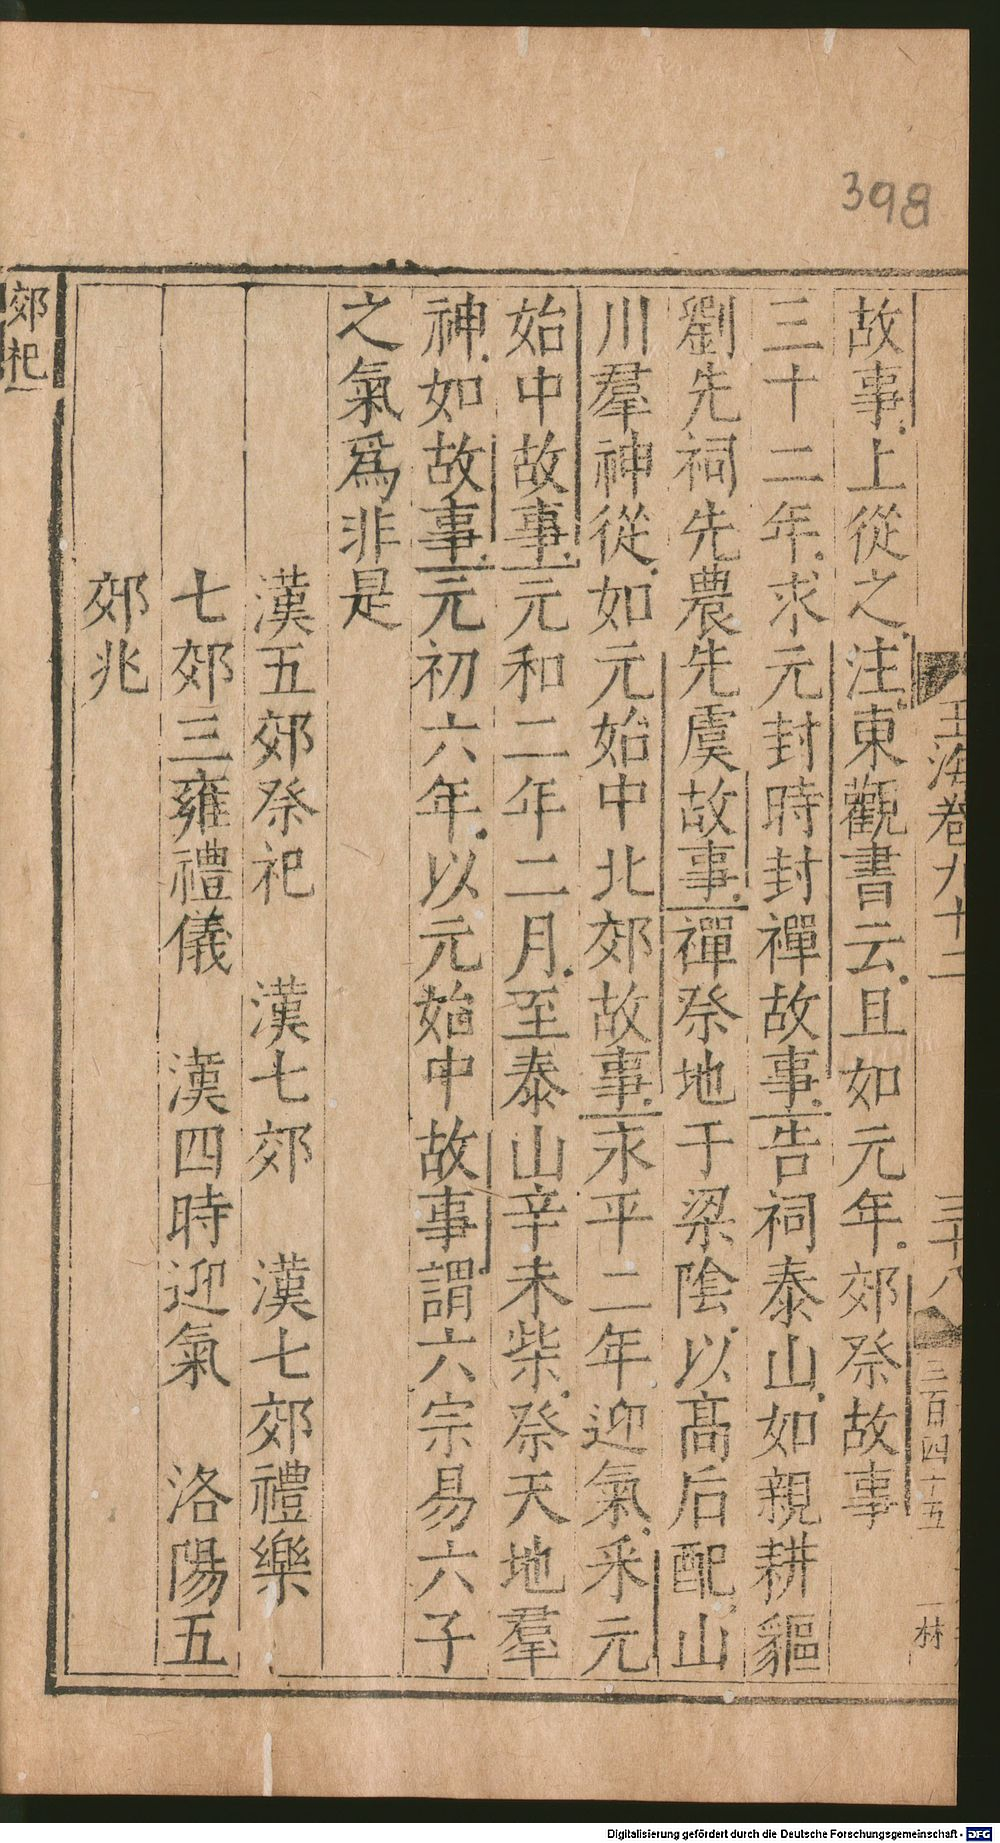 398
玉海卷九十二 三十八 三百四十五 一林
故事上從之注東觀書云且如元年郊祭故事
三十二年求元封時封禪故事告祠泰山如親耕貙
劉先祠先農先虞故事禪祭地于梁陰以高后配山
川羣神從如元始中北郊故事永平二年迎氣采元
始中故事元和二年二月至泰山辛未柴祭天地羣
神如故事元初六年以元始中故事謂六宗易六子
之氣爲非是
漢五郊祭祀 漢七郊 漢七郊禮樂
七郊三雍禮儀 漢四時迎氣 洛陽五
郊兆
郊祀一
Digitalisierung gefördert durch die Deutsche Forschungsgemeinschaft - DFG